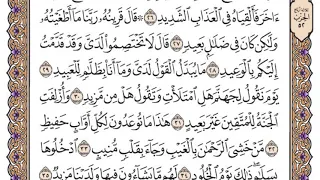 ءَاخَرَ فَأَلْقِيَاهُ فِي ٱلْعَذَابِ ٱلشَّدِيدِ ٢٦ قَالَ قَرِينُهُۥ رَبَّنَا مَآ أَطْغَيْتُهُۥ
وَلَٰكِن كَانَ فِي ضَلَٰلٍۭ بَعِيدٍ ٢٧ قَالَ لَا تَخْتَصِمُوا۟ لَدَيَّ وَقَدْ قَدَّمْتُ
إِلَيْكُم بِٱلْوَعِيدِ ٢٨ مَا يُبَدَّلُ ٱلْقَوْلُ لَدَيَّ وَمَآ أَنَا۠ بِظَلَّٰمٍ لِّلْعَبِيدِ ٢٩
يَوْمَ نَقُولُ لِجَهَنَّمَ هَلِ ٱمْتَلَأْتِ وَتَقُولُ هَلْ مِن مَّزِيدٍ ٣٠ وَأُزْلِفَتِ
ٱلْجَنَّةُ لِلْمُتَّقِينَ غَيْرَ بَعِيدٍ ٣١ هَٰذَا مَا تُوعَدُونَ لِكُلِّ أَوَّابٍ حَفِيظٍ
٣٢ مَّنْ خَشِيَ ٱلرَّحْمَٰنَ بِٱلْغَيْبِ وَجَآءَ بِقَلْبٍ مُّنِيبٍ ٣٣ ٱدْخُلُوهَا
بِسَلَٰمٍ ذَٰلِكَ يَوْمُ ٱلْخُلُودِ ٣٤ لَهُم مَّا يَشَآءُونَ فِيهَا وَلَدَيْنَا مَزِيدٌ ٣٥
الحزب
٥٢